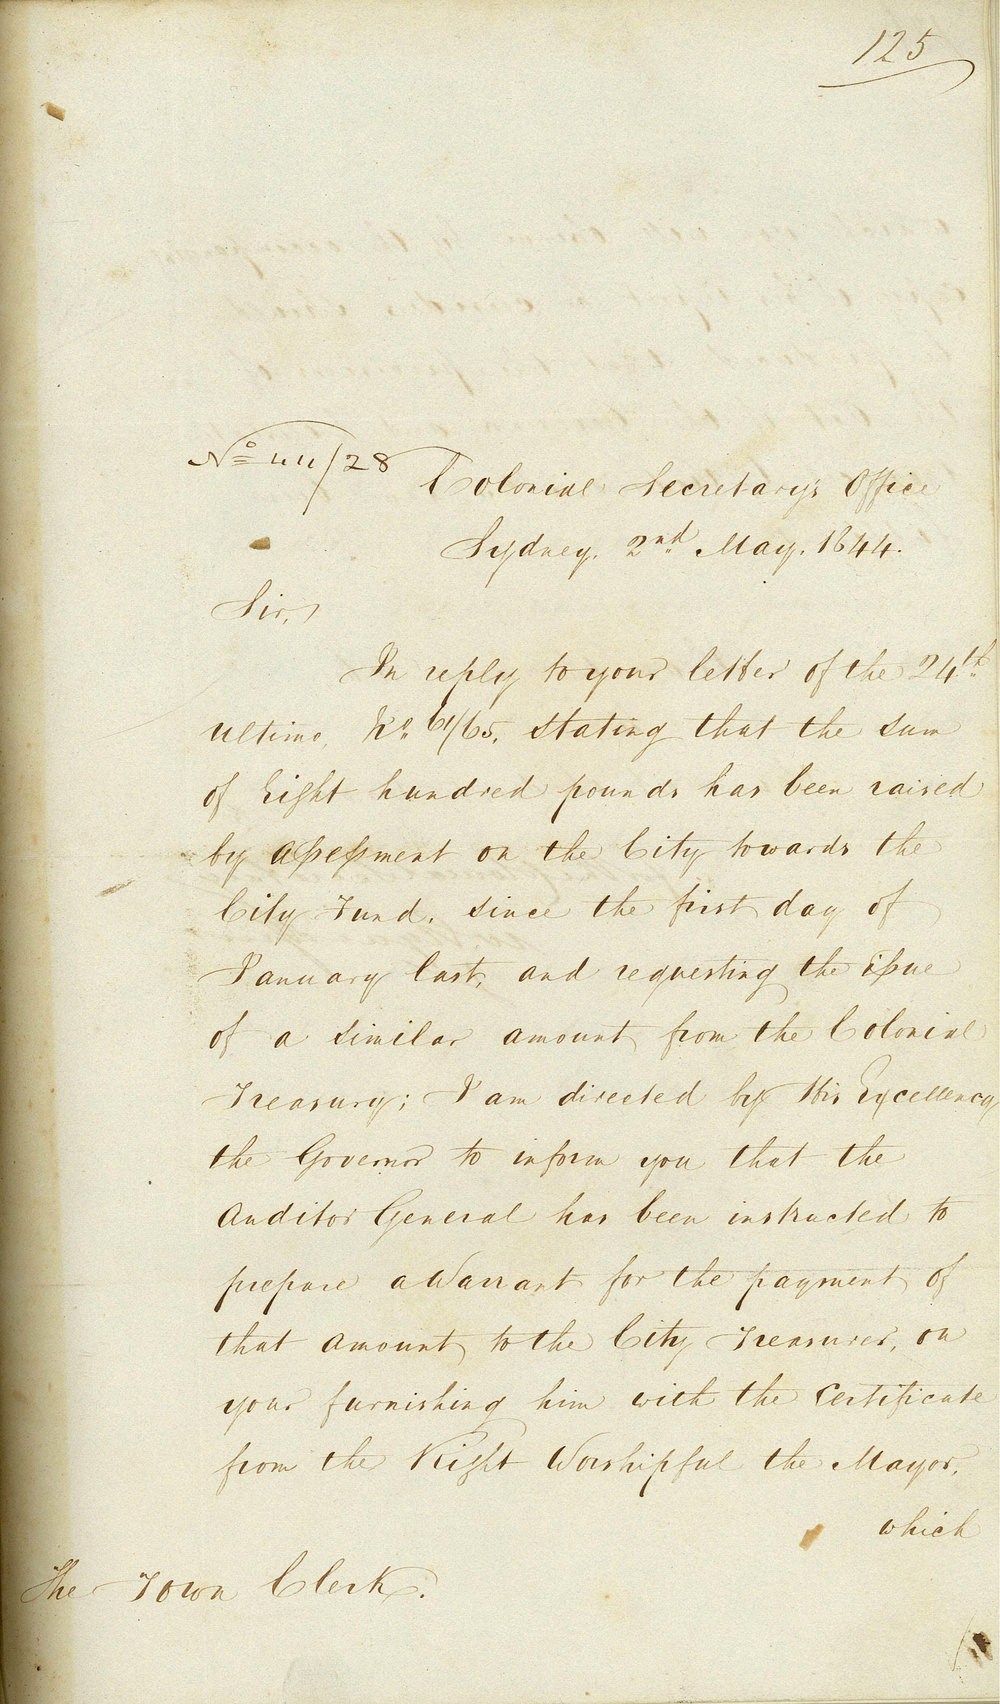 125
No 44/28
Colonial Secretary's Office
Sydney. 2nd May. 1844.
Sir,
In reply to your letter of the 24th
ultimo, No. 61/65, stating that the sum
of Eight hundred pounds has been raised
by assessment on the City towards the
City Fund, since the first day of
January last, and requesting the issue
of a similar amount from the Colonial
Treasury; I am directed by His Excellency
the Governor to inform you that the
Auditor General has been instructed to
prepare a Warrant for the payment of
that amount to the City Treasurer, on
your furnishing him with the Certificate
from the Right Worshipful the Mayor,
which
The Town Clerk.